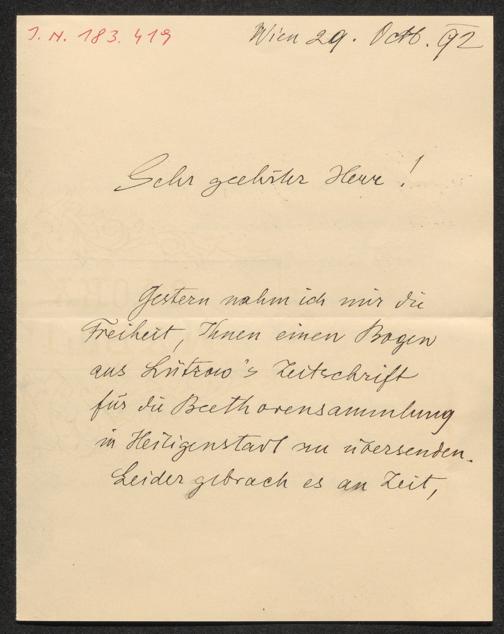 J. N. 183.419
Wien 29. Octb. 92
Sehr geehrter Herr!
Gestern nahm ich mir die
Freiheit, Ihnen einen Bogen
aus Lützow's Zeitschrift
für die Beethovensammlung
in Heiligenstadt zu übersenden.
Leider gebrach es an Zeit,